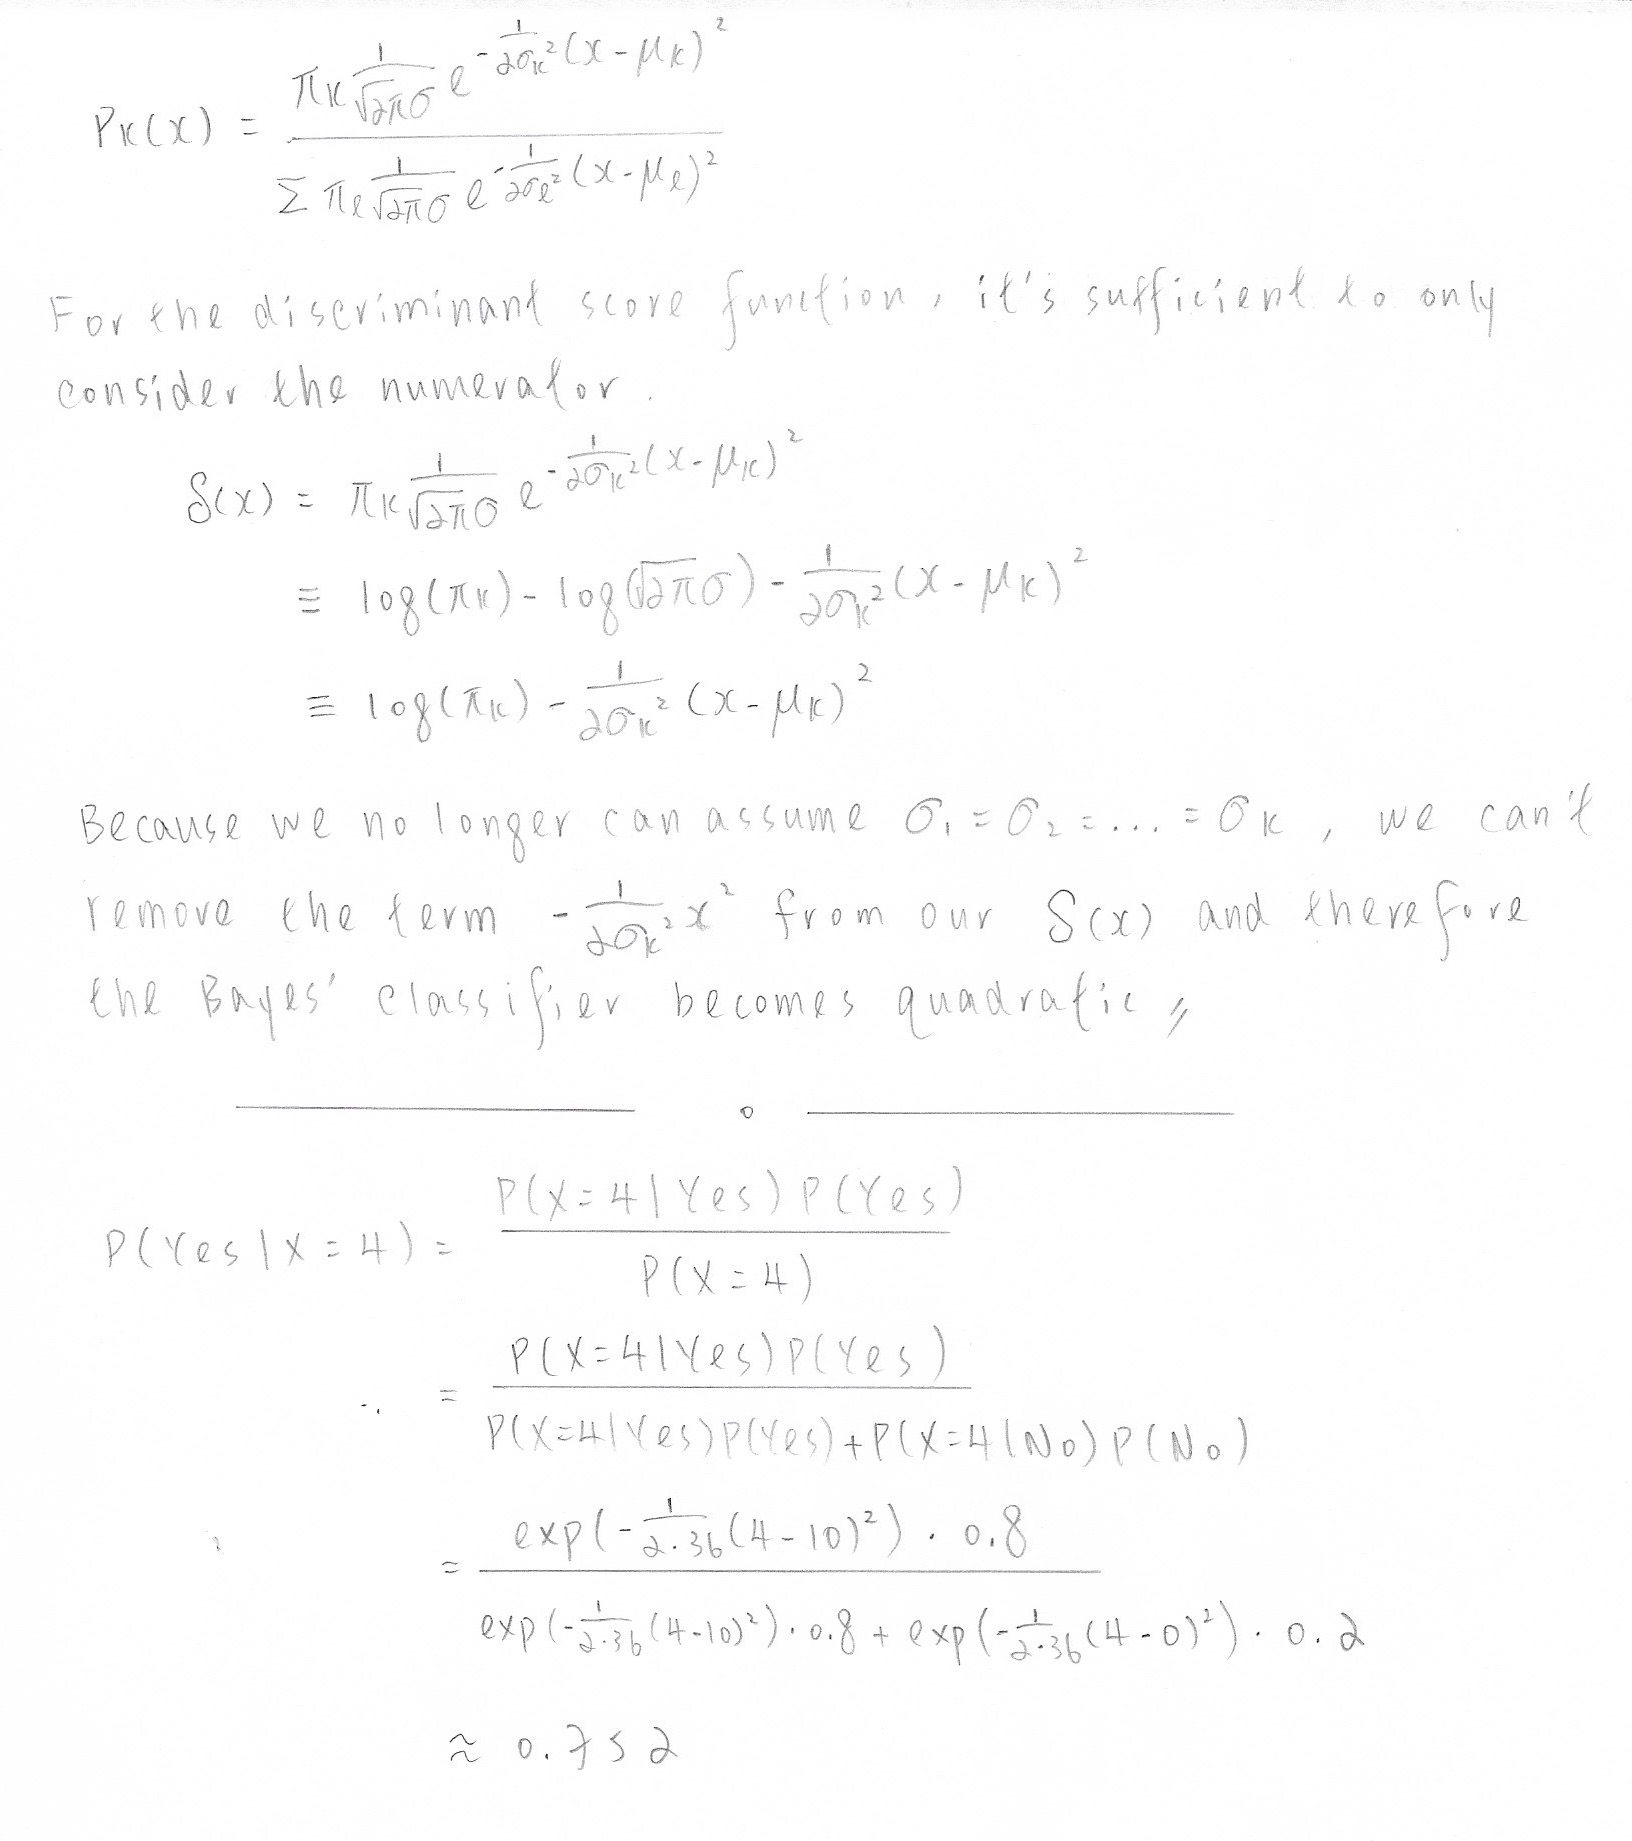 P_K(x) = \frac{π_K \frac{1}{\sqrt{2π}σ} e^{-\frac{1}{2σ_K^2}(x-μ_K)^2}}{Σ π_ℓ \frac{1}{\sqrt{2π}σ} e^{-\frac{1}{2σ_ℓ^2}(x-μ_ℓ)^2}}
For the discriminant score function, it's sufficient to only
consider the numerator.
δ(x) = π_K \frac{1}{\sqrt{2π}σ} e^{-\frac{1}{2σ_K^2}(x-μ_K)^2}
≡ log(π_K) - log(\sqrt{2π}σ) - \frac{1}{2σ_K^2}(x-μ_K)^2
≡ log(π_K) - \frac{1}{2σ_K^2}(x-μ_K)^2
Because we no longer can assume σ_1 = σ_2 = ... = σ_K, we can't
remove the term -\frac{1}{2σ_K^2}x^2 from our δ(x) and therefore
the Bayes' classifier becomes quadratic
P(Yes|X=4) = \frac{P(X=4|Yes)P(Yes)}{P(X=4)}
= \frac{P(X=4|Yes)P(Yes)}{P(X=4|Yes)P(Yes)+P(X=4|No)P(No)}
= \frac{exp(-\frac{1}{2·36}(4-10)^2)·0.8}{exp(-\frac{1}{2·36}(4-10)^2)·0.8 + exp(-\frac{1}{2·36}(4-0)^2)·0.2}
≈ 0.752